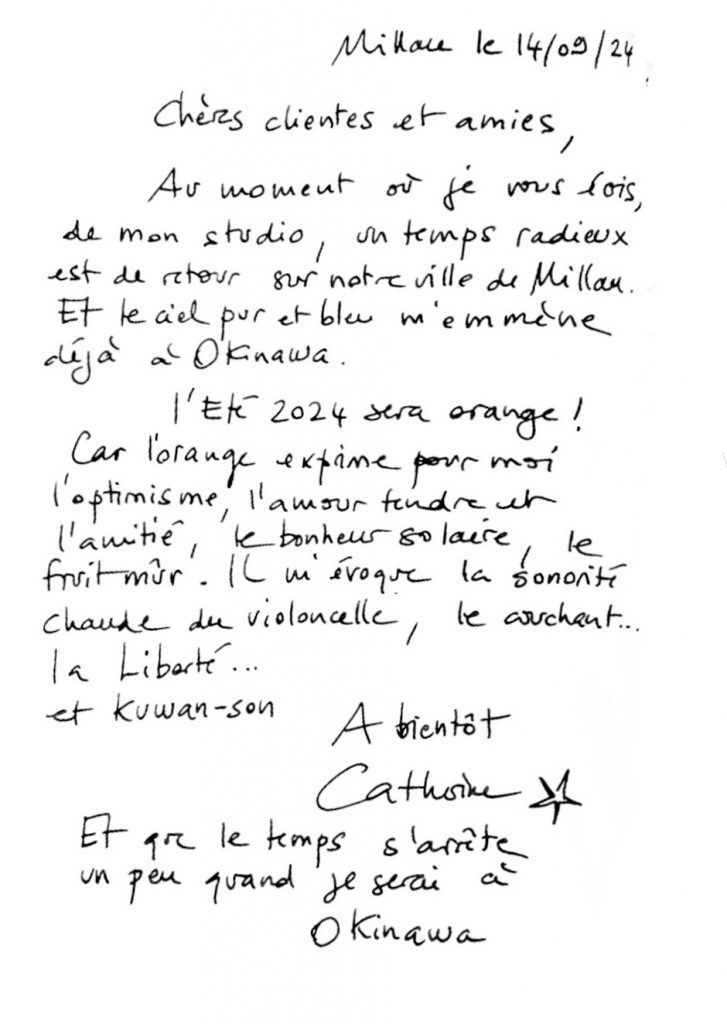 Millau le 14/09/24
Chères clientes et amies,
Au moment où je vous écris,
de mon studio, un temps radieux
est de retour sur notre ville de Millau.
Et le ciel pur et bleu m'emmène
déjà à Okinawa.
l'Eté 2024 sera orange !
Car l'orange exprime pour moi
l'optimisme, l'amour tendre et
l'amitié, le bonheur solaire, le
fruit mûr. Il m'évoque la sonorité
chaude du violoncelle, le couchant...
la Liberté...
et Kuwan-son
A bientôt
Catherine
Et que le temps s'arrête
un peu quand je serai à
Okinawa